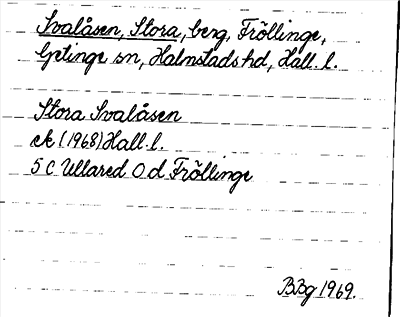 Svalåsen, Stora, berg, Fröllinge,
Getinge sn, Halmstads hd, Hall. l.
Stora Svalåsen
ek (1968) Hall. l.
5 C Ullared O d Fröllinge
BBg 1969.